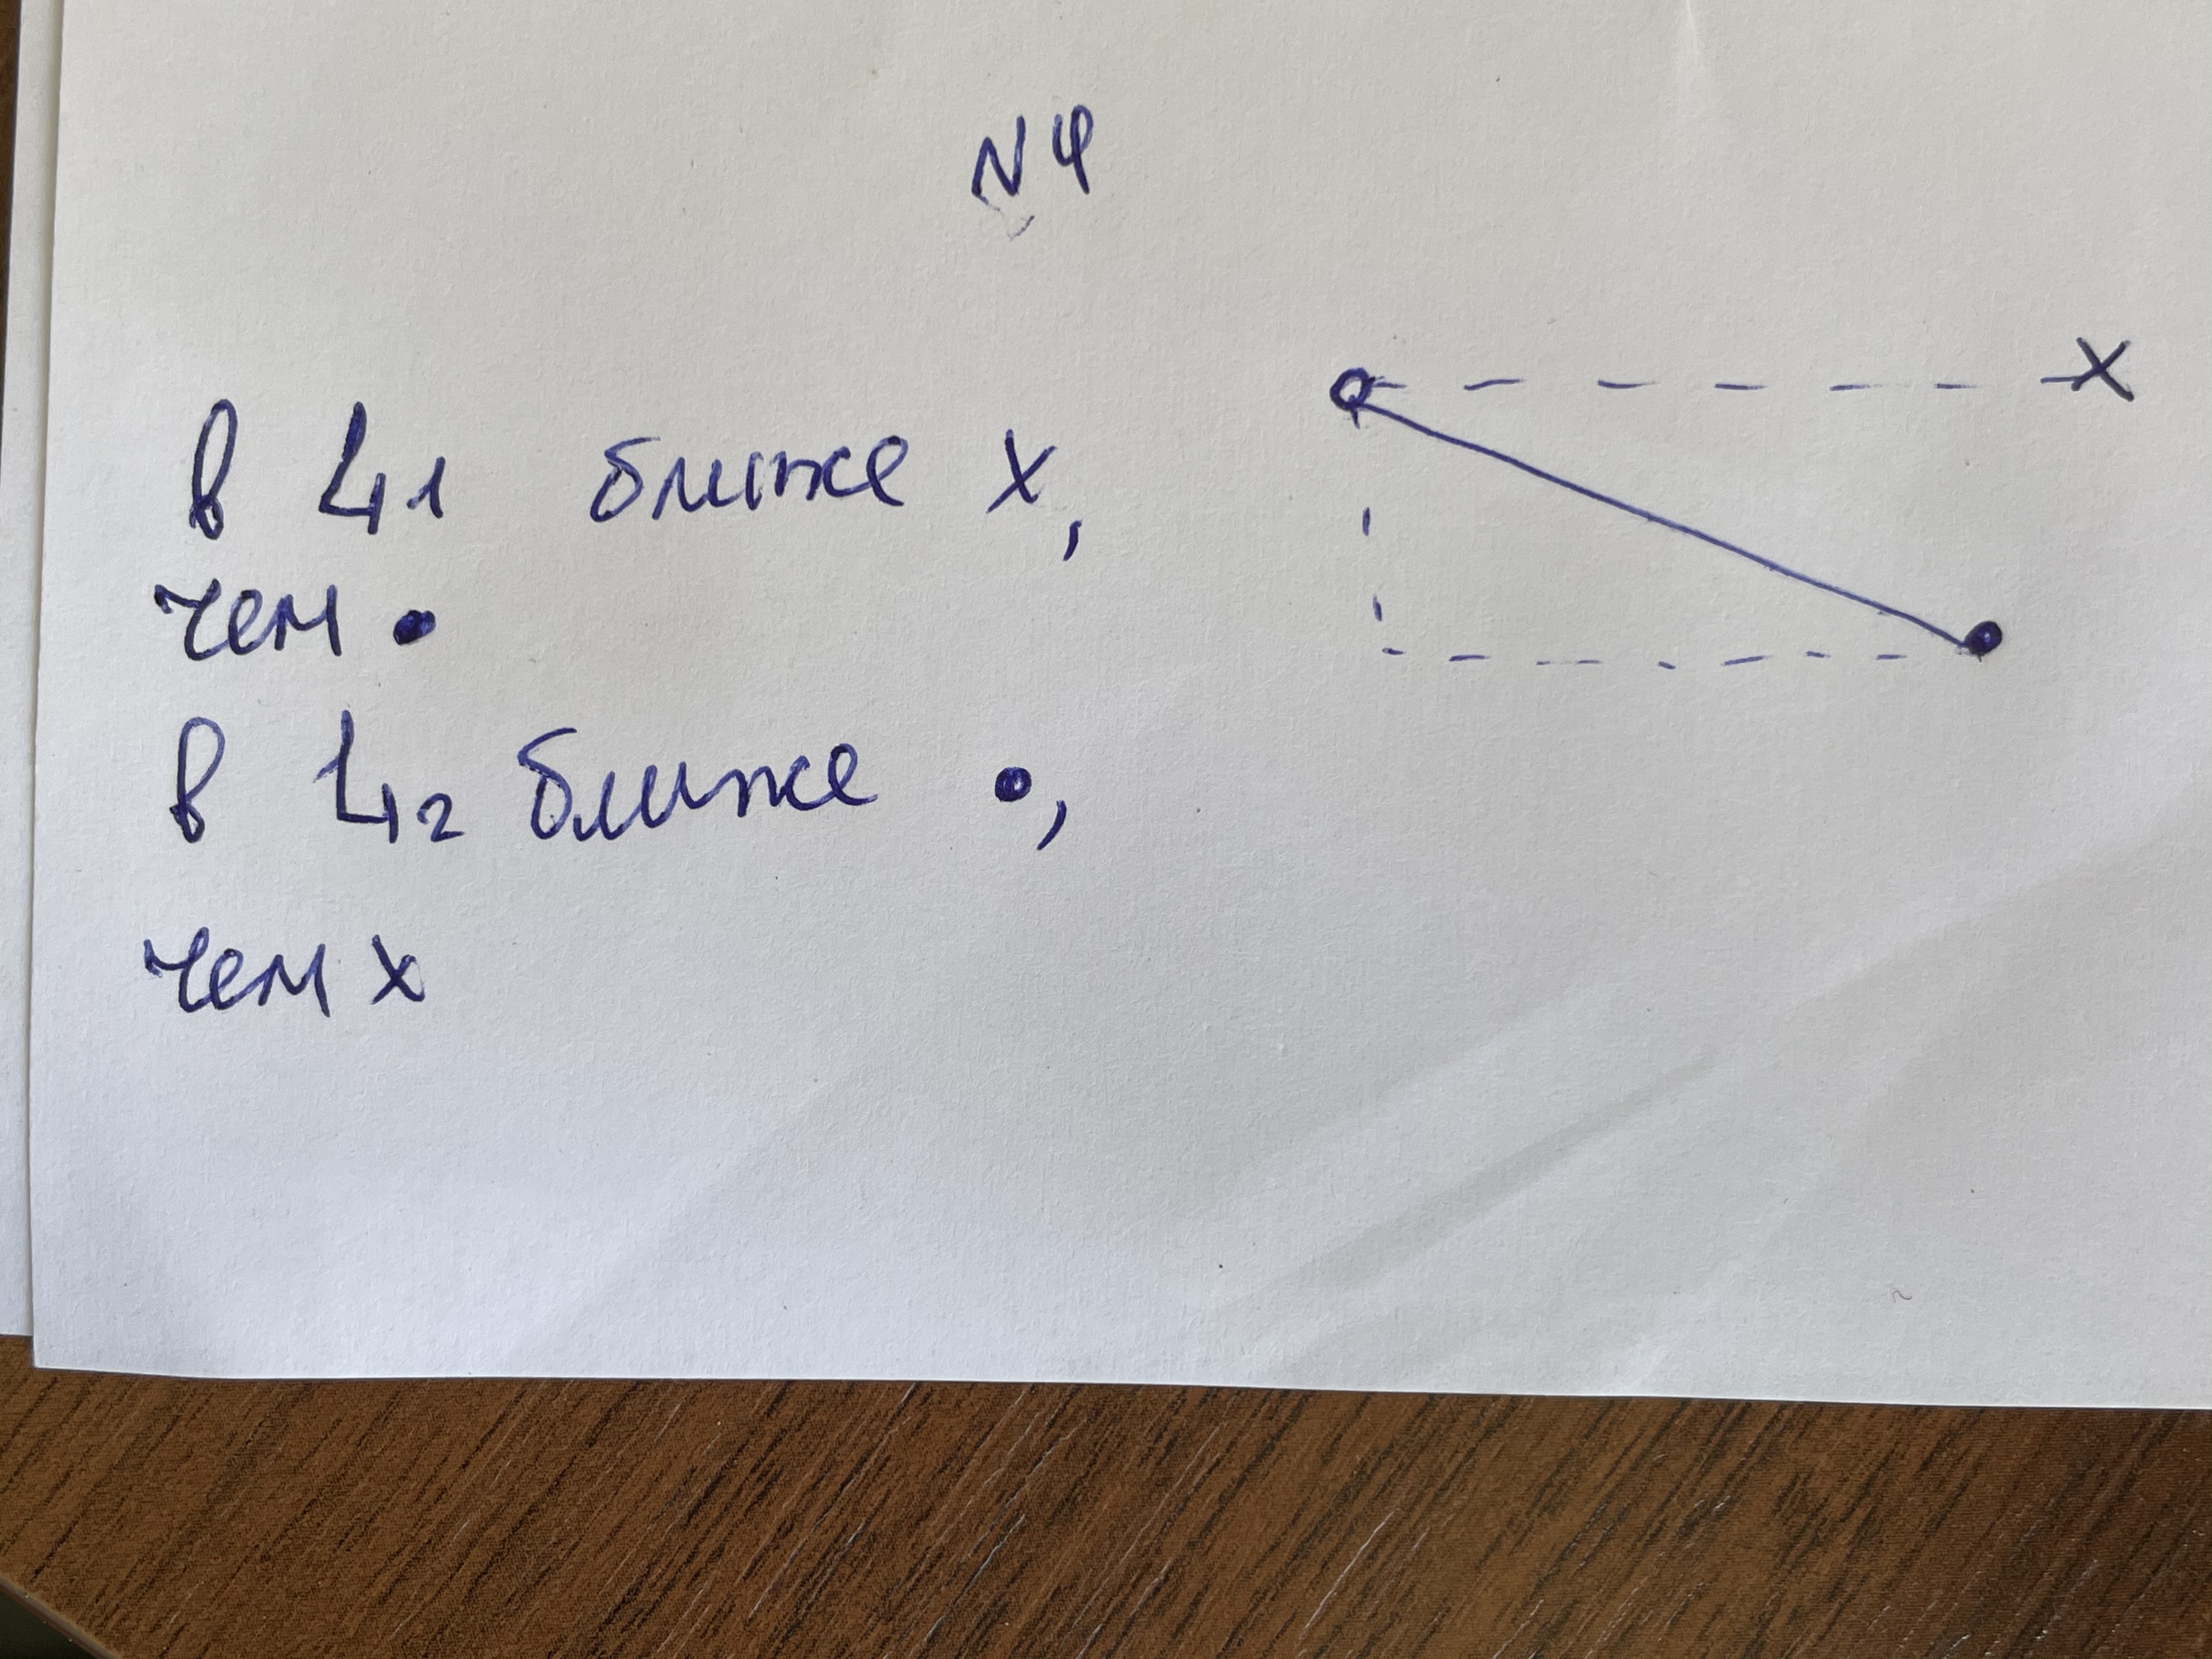 N4
в L1 ближе x,
чем •
в L2 ближе •,
чем x
x